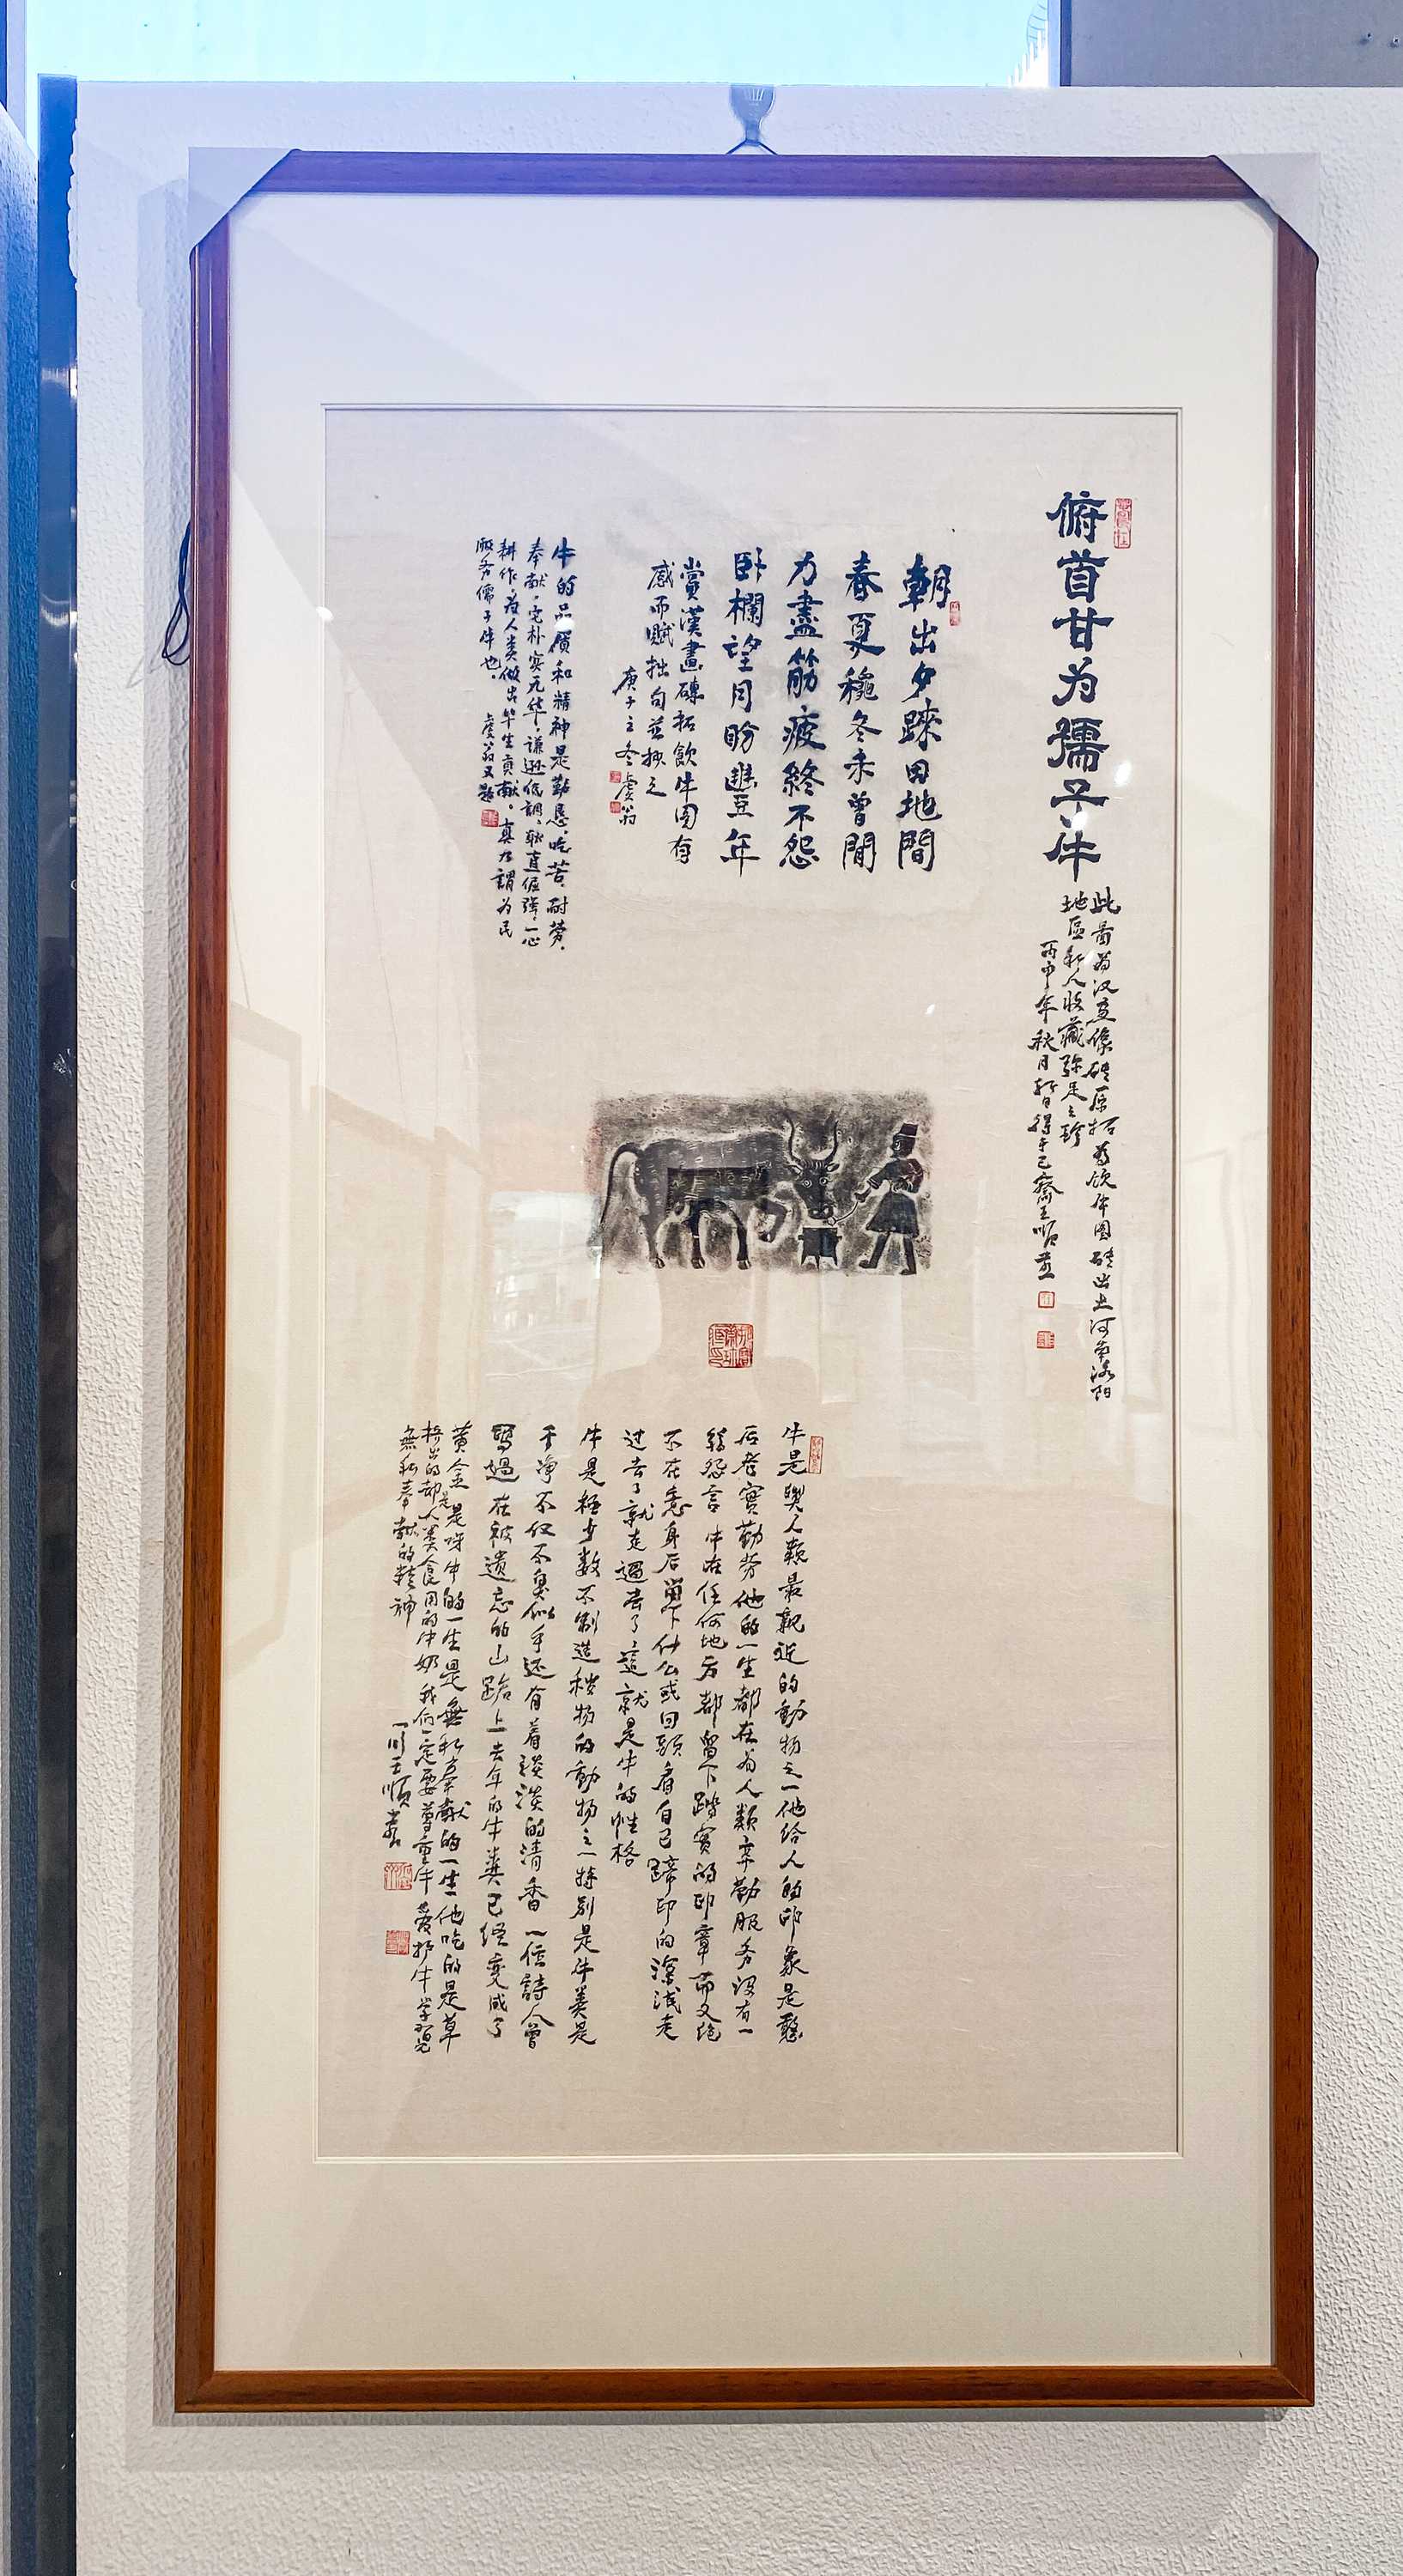 俯首甘为孺子牛
此图为汉画像砖原拓为饮牛图砖出土河南洛阳
地区私人收藏弥足之珍
丙申年秋月好日得于己斋王顺
朝出夕踩田地間
春夏穐冬未曾閒
力盡筋疲終不怨
卧欄望月盼豐年
賞漢畫磚拓飲牛图有
感而赋拙句並揿之
庚子之冬虞翁
牛的品质和精神是勤恳、吃苦、耐劳、
奉献。它朴实无华、谦逊低調、耿直倔强、一心
耕作,为人类做出毕生貢献。真乃謂为民
服务儒子牛也。虞翁又題
牛是與人類最親近的動物之一他给人的印象是憨
厚老實勤劳他的一生都在为人類辛勤服务沒有一
言牛在任何地方都留下踏實的印章而又绝
不在意身后留下什么或回頭看自己蹄印的深浅走
过去了就走過去了這就是牛的性格
牛是極少数不制造穢物的動物之一特别是牛粪是
干净不仅不臭似乎还有着淡淡的清香一位詩人曾
寫過在被遗忘的山路上去年的牛粪已经变成了
黄金是呀牛的一生是無私奉献的一生他吃的是草
挤出的却是人类食用的牛奶我们一定要尊重牛愛护牛学習
無私奉献的精神
王順書